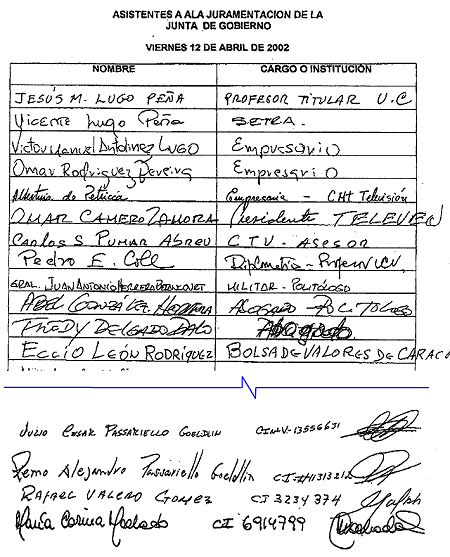 ASISTENTES A ALA JURAMENTACION DE LA
JUNTA DE GOBIERNO
VIERNES 12 DE ABRIL DE 2002
NOMBRE CARGO O INSTITUCIÓN
JESÚS M. LUGO PEÑA PROFESOR TITULAR U.C
Vicente Lugo Peña SETRA.
Victor Manuel Antolinez LUGO Empresario
Omar Rodriguez Pereira Empresario
de Patricia Empresaria - CMT Televisión
OMAR CAMERO ZAMORA Presidente TELEVEN
Carlos S. PUMAR ABREU C.T.V - ASESOR
Pedro E. Coll Diplomático - Profesor UCV
GRAL. JUAN ANTONIO HERRERA BETANCOURT MILITAR - POLITÓLOGO
ABEL GONZÁLEZ HERRERA ABOGADO - POLITOLOGO
FREDY DELGADO Abogado
ELCIO LEÓN RODRÍGUEZ BOLSA DE VALORES DE CARACA
JULIO CESAR PASSARIELLO GOELDLIN V-13556631
Remo Alejandro Passariello Goeldlin
RAFAEL VALERO GOMEZ CI 3234374
María Corina Machado CI 6914799